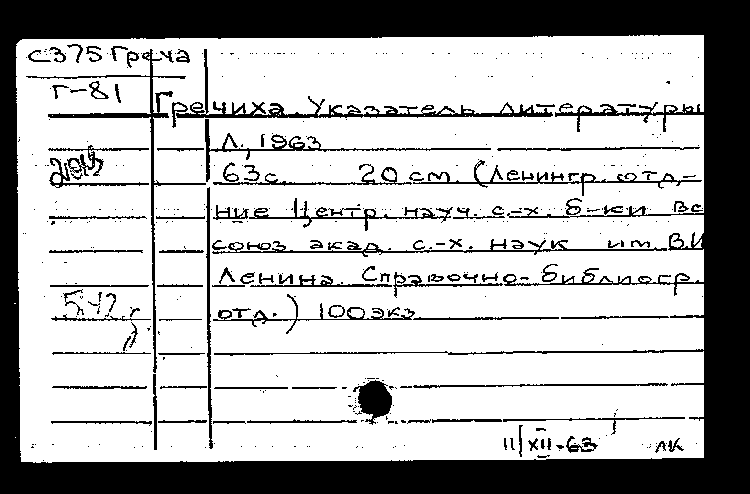 С375 Греча
Г-81
Гречиха. Указатель литературы
Л., 1963
63с. 20 см. (Ленингр. отд.-
ние Центр. науч. с.-х. б-ки Вс
союз. акад. с.-х. наук им. В.И
Ленина. Справочно-библиогр.
отд.) 100экз.
II/XII-63 ЛК